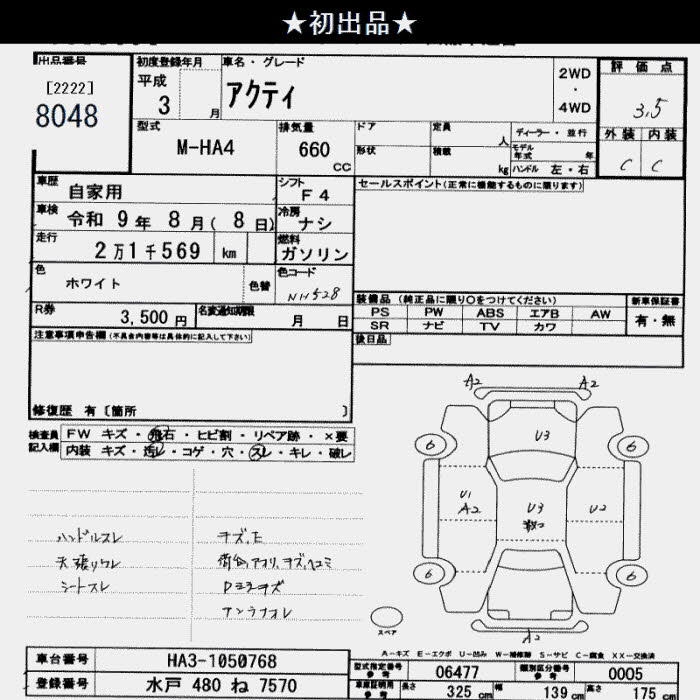 ★初出品★
出品番号
[2222]
8048
初度登録年月
平成
3 月
車名・グレード
アクティ
2WD
・
4WD
評価点
3.5
外装 内装
C C
型式
M-HA4
排気量
660
CC
ドア
定員
人
ディーラー・並行
形状
積載
kg
モデル年式 年
ハンドル 左・右
車歴
自家用
シフト
F4
セールスポイント(正常に機能するものに限ります)
車検
令和 9年 8月( 8日)
冷房
ナシ
走行
2万1千569 km
燃料
ガソリン
色
ホワイト
色替
色コード
NH528
装備品 (純正品に限り○をつけてください)
新車保証書
PS PW ABS エアB AW
有・無
SR ナビ TV カワ
R券
3,500 円
名変通知期限
月 日
後日品
注意事項申告欄(不具合内容等は具体的に記入して下さい)
修復歴 有〔箇所 〕
検査員記入欄
FW キズ・飛石・ヒビ割・リペア跡・×要
内装 キズ・汚レ・コゲ・穴・スレ・キレ・破レ
A2 A2
U3
6 6
U1
A2
U3
U2
6 6
A2
ハンドルスレ
天張りワレ
シートスレ
スペア
A-キズ E-エクボ U-凹み W-補修跡 S-サビ C-腐食 XX-交換済
車台番号
HA3-1050768
型式指定番号
参考
06477
類別区分番号
参考
0005
登録番号
水戸 480 ね 7570
車庫証明用
参考
長さ
325 cm
幅
139 cm
高さ
175 cm